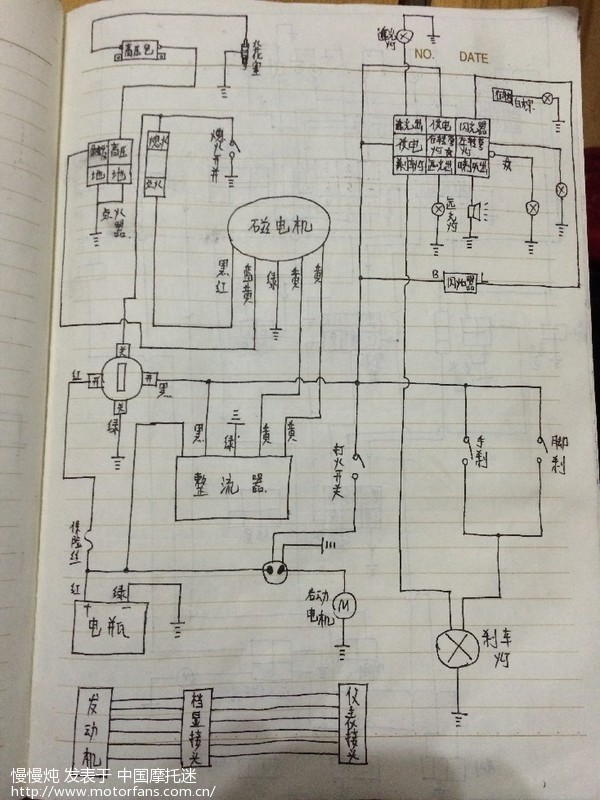 高压包
火花塞
近光灯
NO.
DATE
近光出
供电
闪光器
供电
右转向灯
左转向灯
远光出
高压
地
地
点火器
熄火
点火
熄火开关
磁电机
黑红
蓝黄
绿
黄
黄
远光灯
B
闪光器
L
关
红
开
开
黑
关
绿
黑
绿
黄
黄
整流器
打火开关
手刹
脚刹
保险丝
红
绿
+
-
电瓶
启动电机
M
刹车灯
发动机
档显接头
仪表接头
慢慢炖 发表于 中国摩托迷
http://www.motorfans.com.cn/